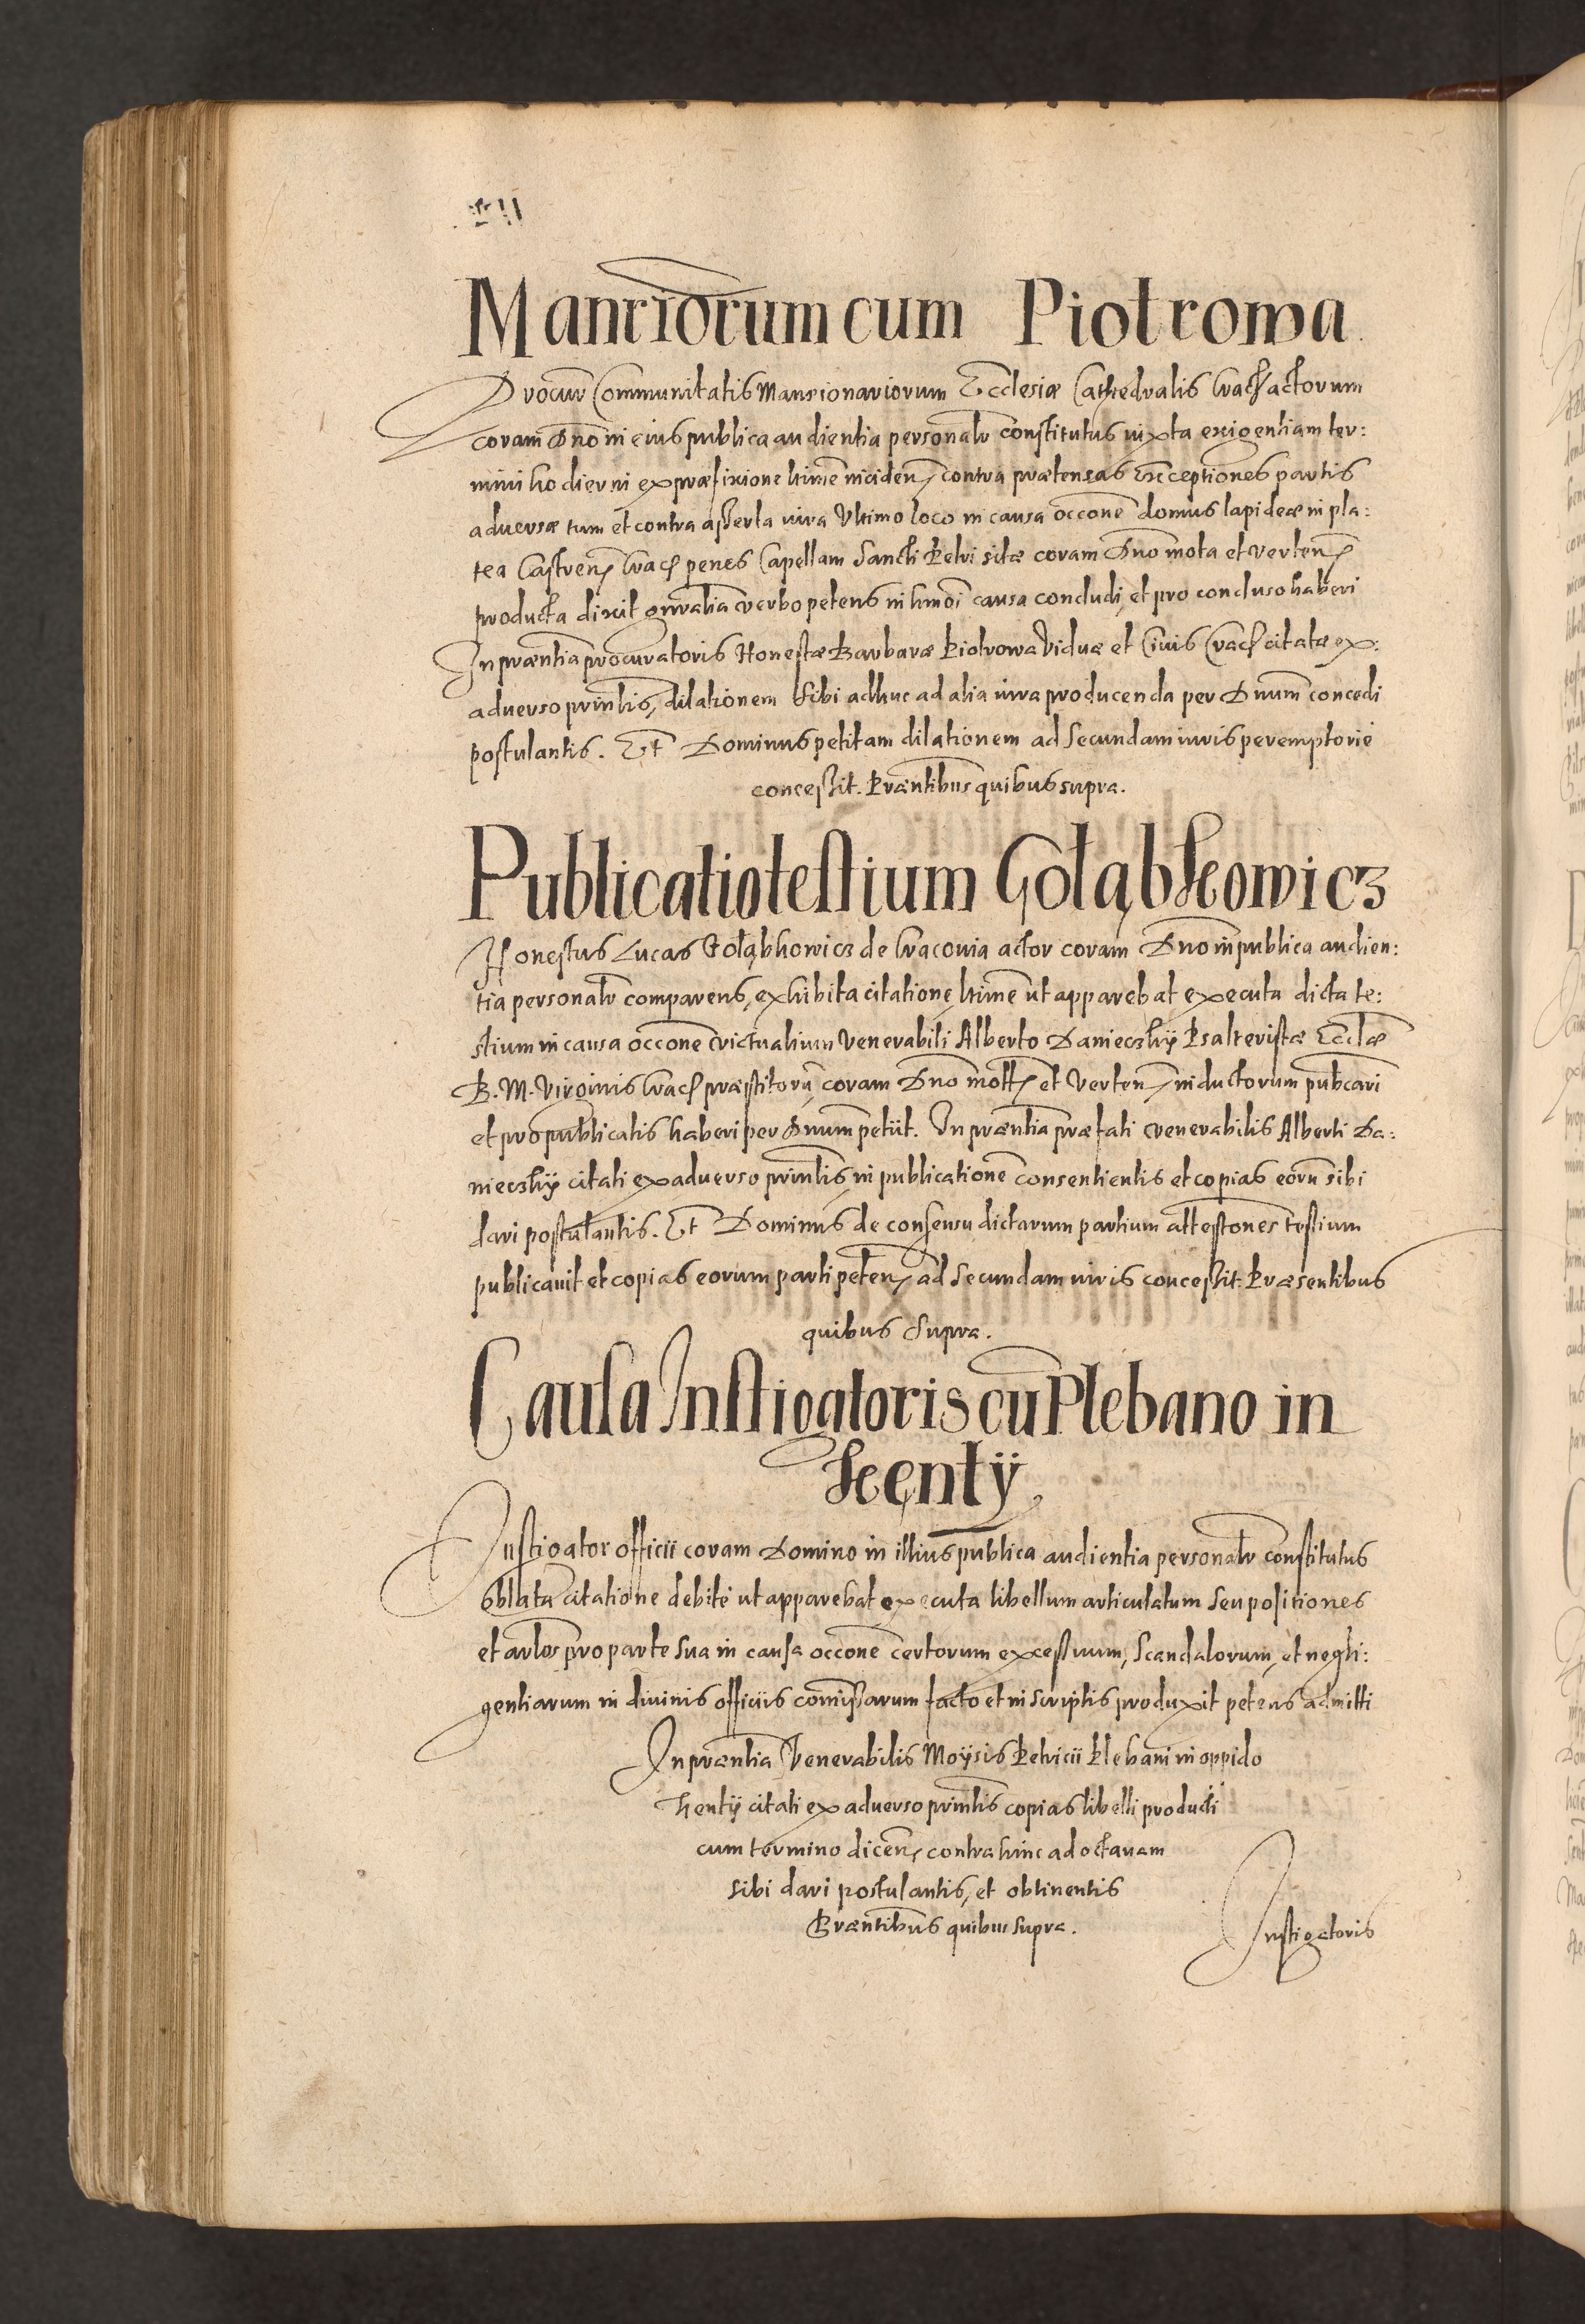 Manriorum cum Piotrowa
Procur Communitatis Mansionariorum Ecclesiæ Cathedralis Crac actorum
coram Dno in eius publica audientia personalr constitutus iuxta exigentiam ter:
mini hodierni ex præfixione ltime inciden contra prætensas exceptiones partis
adversæ tum et contra asserta iura Ultimo loco in causa occone domus lapideæ in pla:
tea Castren Crac penes Capellam Sancti Petri sitæ coram Dno mota et verten
producta dixit gnralia verbo petens in hmoi causa concludi, et pro concluso haberi
In præntia procuratoris Honestæ Barbaræ Piotrowa Viduæ et Civis Crac citatæ ex:
adverso prmlis, dilationem sibi adhuc ad alia iura producenda per Dnum concedi
postulantis. Et Dominus petitam dilationem ad secundam iuris peremptorie
concessit. Præntibus quibus supra.
Publicatio testium Gołąbkowicz
Honestus Lucas Gołąbkowicz de Cracovia actor coram Dno in publica audien:
tia personalr comparens, exhibita citatione ltime ut apparebat executa dicta te:
stium in causa occone victualium Venerabili Alberto Danieczkÿ Psalteristæ Ecclæ
B. M. Virginis Crac præstitoru, coram Dno mott et verten inductorum pubcari
et pro publicatis haberi per Dnum petiit. In præntia præfati venerabilis Alberti Da:
nieczkÿ citati ex adverso prmlis, in publicatione consentientis et copias eoru sibi
dari postulantis. Et Dominus de consensu dictarum partium attestones testium
publicavit et copias eorum parti peten ad secundam iuris concessit. Præsentibus
quibus supra.
Causa Instigatoris cu Plebano in
Kęntÿ
Instigator officii coram Domino in illius publica audientia personalr constitutus
oblata citatione debite ut apparebat executa libellum articulatum seu positiones
et arlos pro parte sua in causa occone certorum excessuum, scandalorum, et negli:
gentiarum in divinis officiis comissarum facto et in scriptis produxit petens admitti
In præntia Venerabilis Moÿsis Petricii Plebani in oppido
Kentÿ citati ex adverso prmlis copias libelli producti
cum termino dicen contra hinc ad octavam
sibi dari postulantis, et obtinentis
Præntibus quibus supra.
Instigatoris